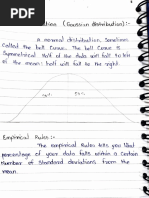 distribution (Gaussian distribution):-
A normal distribution, sometimes
Called the bell Curve. The bell Curve is
Symmetrical Half of the data will fall to left
of the mean; half will fall to the right.
Empirical Rules:-
The empirical Rules tells you What
percentage of your data falls within a Certain
number of Standard deviations from the
mean.